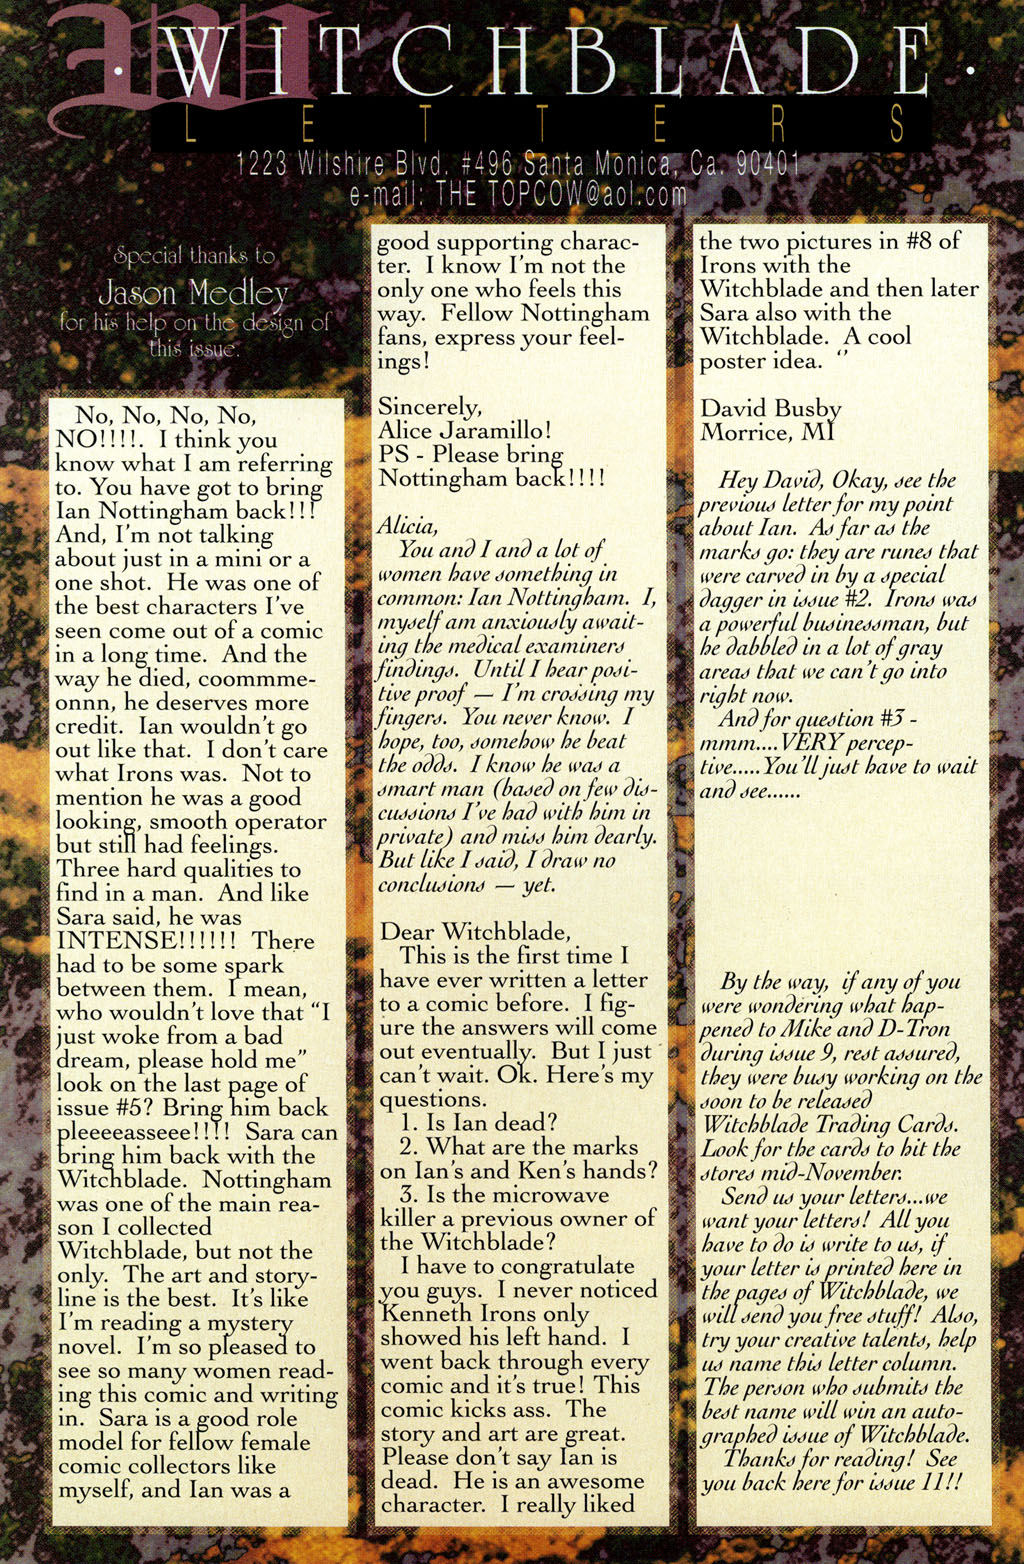 · WITCHBLADE ·
LETTERS
1223 Wilshire Blvd. #496 Santa Monica, Ca. 90401
e-mail: THE TOPCOW@aol.com
Special thanks to
Jason Medley
for his help on the design of
this issue.
No, No, No, No,
NO!!!!. I think you
know what I am referring
to. You have got to bring
Ian Nottingham back!!!
And, I'm not talking
about just in a mini or a
one shot. He was one of
the best characters I've
seen come out of a comic
in a long time. And the
way he died, coommme-
onnn, he deserves more
credit. Ian wouldn't go
out like that. I don't care
what Irons was. Not to
mention he was a good
looking, smooth operator
but still had feelings.
Three hard qualities to
find in a man. And like
Sara said, he was
INTENSE!!!!!! There
had to be some spark
between them. I mean,
who wouldn't love that “I
just woke from a bad
dream, please hold me”
look on the last page of
issue #5? Bring him back
pleeeeasseee!!!! Sara can
bring him back with the
Witchblade. Nottingham
was one of the main rea-
son I collected
Witchblade, but not the
only. The art and story-
line is the best. It's like
I'm reading a mystery
novel. I'm so pleased to
see so many women read-
ing this comic and writing
in. Sara is a good role
model for fellow female
comic collectors like
myself, and Ian was a
good supporting charac-
ter. I know I'm not the
only one who feels this
way. Fellow Nottingham
fans, express your feel-
ings!
Sincerely,
Alice Jaramillo!
PS - Please bring
Nottingham back!!!!
Alicia,
You and I and a lot of
women have something in
common: Ian Nottingham. I,
myself am anxiously await-
ing the medical examiners
findings. Until I hear posi-
tive proof — I'm crossing my
fingers. You never know. I
hope, too, somehow he beat
the odds. I know he was a
smart man (based on few dis-
cussions I've had with him in
private) and miss him dearly.
But like I said, I draw no
conclusions — yet.
Dear Witchblade,
This is the first time I
have ever written a letter
to a comic before. I fig-
ure the answers will come
out eventually. But I just
can't wait. Ok. Here's my
questions.
1. Is Ian dead?
2. What are the marks
on Ian's and Ken's hands?
3. Is the microwave
killer a previous owner of
the Witchblade?
I have to congratulate
you guys. I never noticed
Kenneth Irons only
showed his left hand. I
went back through every
comic and it's true! This
comic kicks ass. The
story and art are great.
Please don't say Ian is
dead. He is an awesome
character. I really liked
the two pictures in #8 of
Irons with the
Witchblade and then later
Sara also with the
Witchblade. A cool
poster idea. ‘’
David Busby
Morrice, MI
Hey David, Okay, see the
previous letter for my point
about Ian. As far as the
marks go: they are runes that
were carved in by a special
dagger in issue #2. Irons was
a powerful businessman, but
he dabbled in a lot of gray
areas that we can't go into
right now.
And for question #3 -
mmm....VERY percep-
tive.....You'll just have to wait
and see......
By the way, if any of you
were wondering what hap-
pened to Mike and D-Tron
during issue 9, rest assured,
they were busy working on the
soon to be released
Witchblade Trading Cards.
Look for the cards to hit the
stores mid-November.
Send us your letters...we
want your letters! All you
have to do is write to us, if
your letter is printed here in
the pages of Witchblade, we
will send you free stuff! Also,
try your creative talents, help
us name this letter column.
The person who submits the
best name will win an auto-
graphed issue of Witchblade.
Thanks for reading! See
you back here for issue 11!!